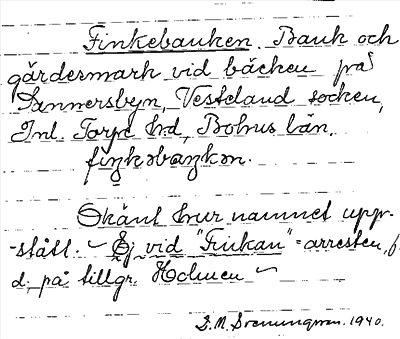 Finkebanken. Bank och
gärdesmark vid bäcken på
Sannersbyn, Vesteland socken,
Inl. Torpe hrd, Bohus län.
fiŋkəbaŋkən.
Okänt hur namnet upp-
-stått. Ej vid "Finkan"=arresten, f.
d. på tillgr. Holmen
S. M. Svenungsson. 1940.